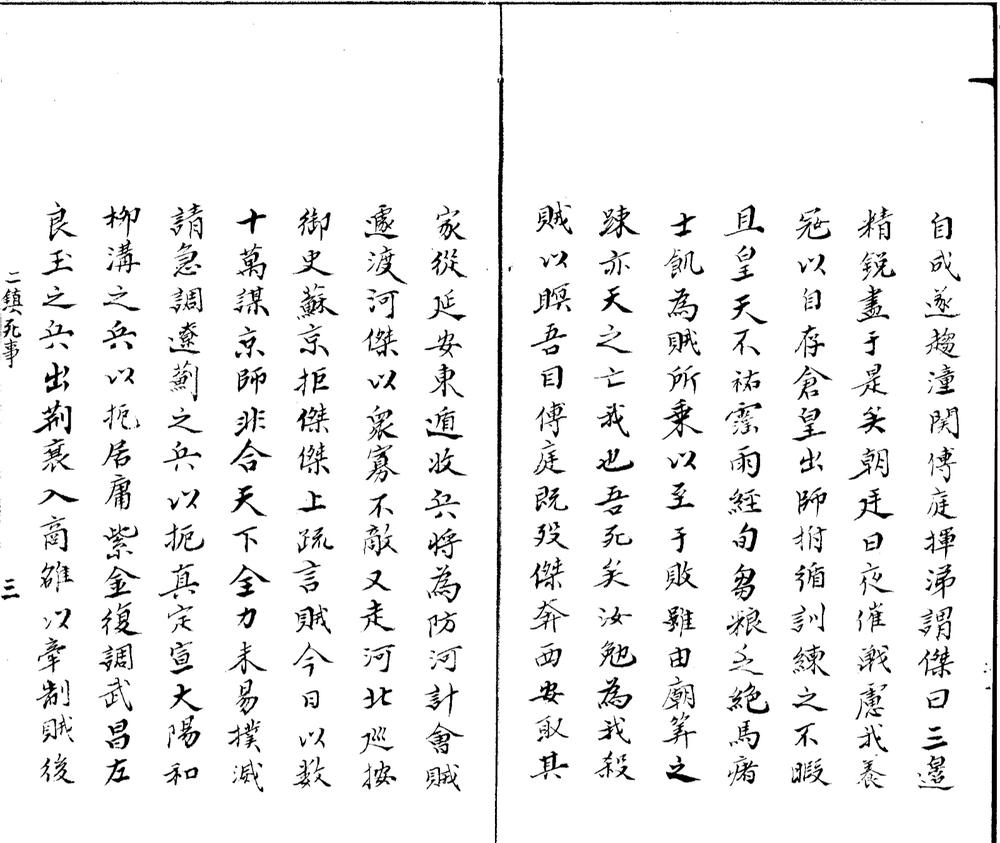 自成遂趨潼関傅庭揮涕謂傑曰三邊
精鋭盡于是矣朝廷日夜催戰慮我養
冦以自存倉皇出師拊循訓練之不暇
且皇天不祐霪雨經旬芻粮乏絶馬瘏
士飢為賊所乗以至于敗雖由廟筭之
踈亦天之亡我也吾死矣汝勉為我殺
賊以瞑吾目傅庭既殁傑奔西安取其
家從延安東遁收兵将為防河計會賊
遽渡河傑以衆寡不敵又走河北廵按
御史蘇京拒傑傑上疏言賊今日以数
十萬謀京師非合天下全力未易撲滅
請急調遼薊之兵以扼真定宣大陽和
柳溝之兵以扼居庸紫金復調武昌左
良玉之兵出荆襄入商雒以牽制賊後
二鎮死事
三